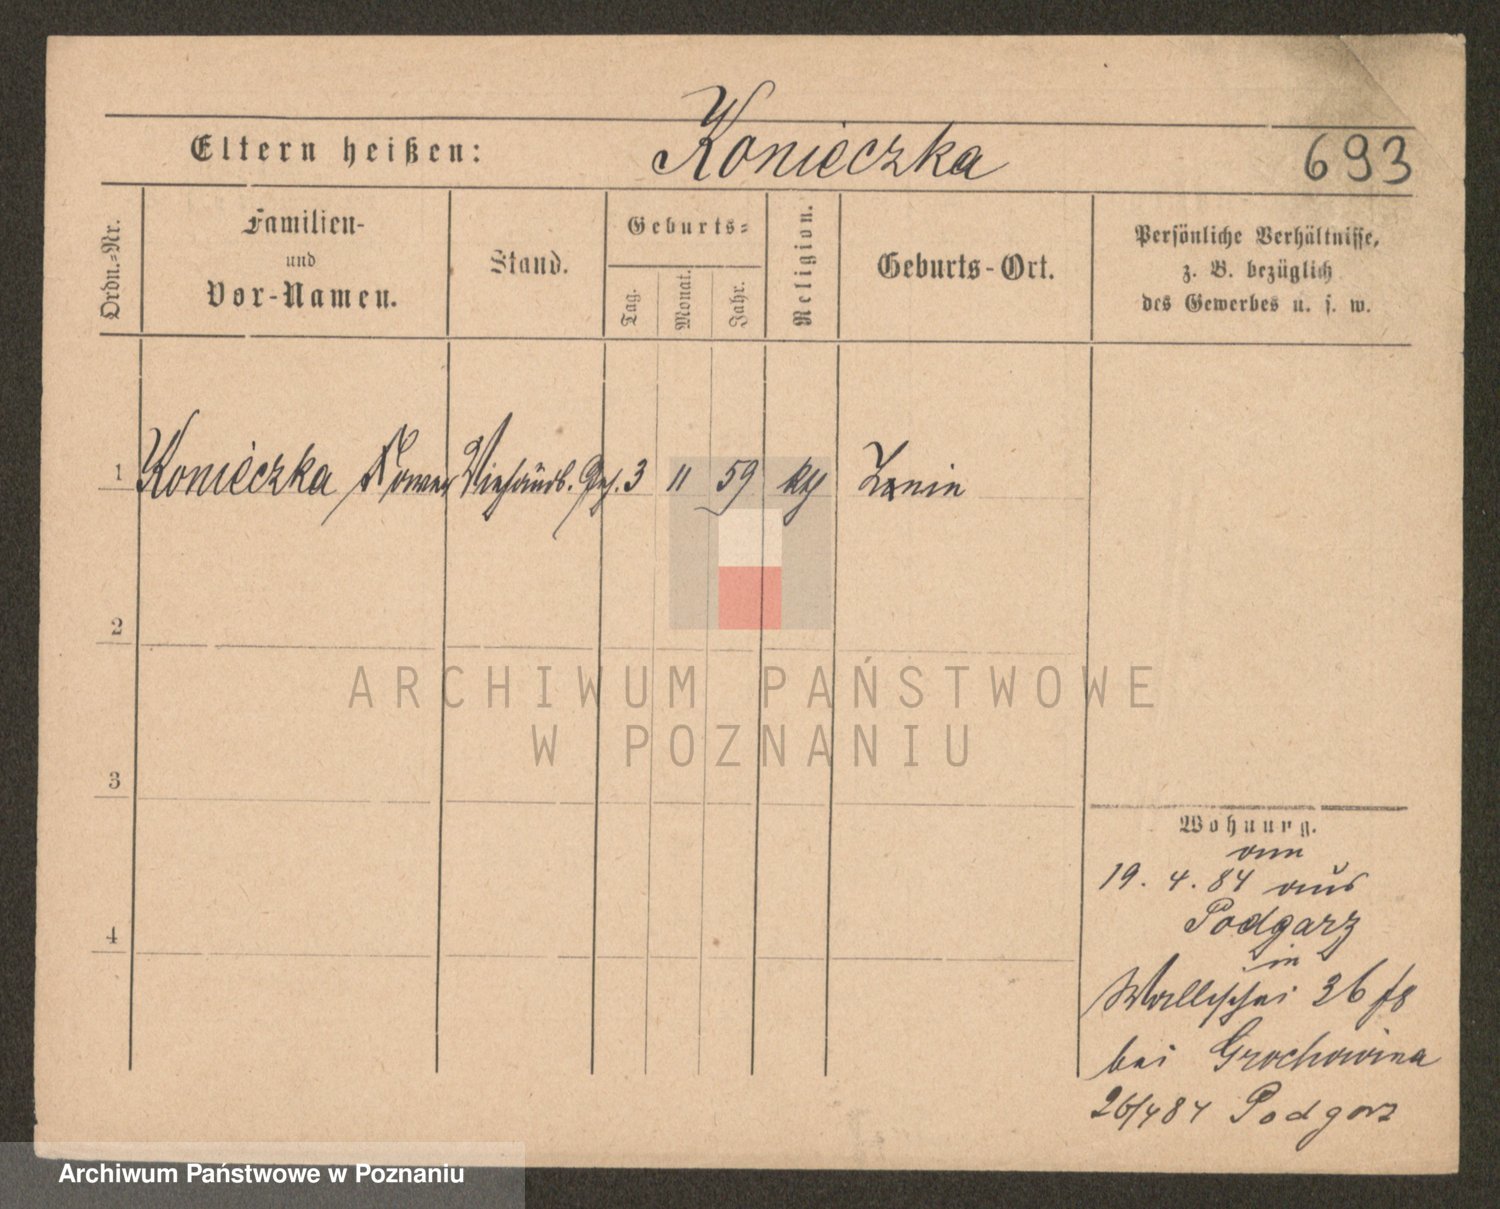 Eltern heißen: Konieczka 693
Ordn.-Nr.
Familien-
und
Vor-Namen.
Stand.
Geburts-
Tag.
Monat.
Jahr.
Religion.
Geburts-Ort.
Persönliche Verhältnisse,
z. B. bezüglich
des Gewerbes u. s. w.
1 Konieczka 3 11 59 Znin
2
ARCHIWUM PAŃSTWOWE
W POZNANIU
3
Wohnung.
19. 4. 84 aus
Podgarz
4
in
Wallischei 36
bei Grochowina
26/4 84 Podgorz
Archiwum Państwowe w Poznaniu